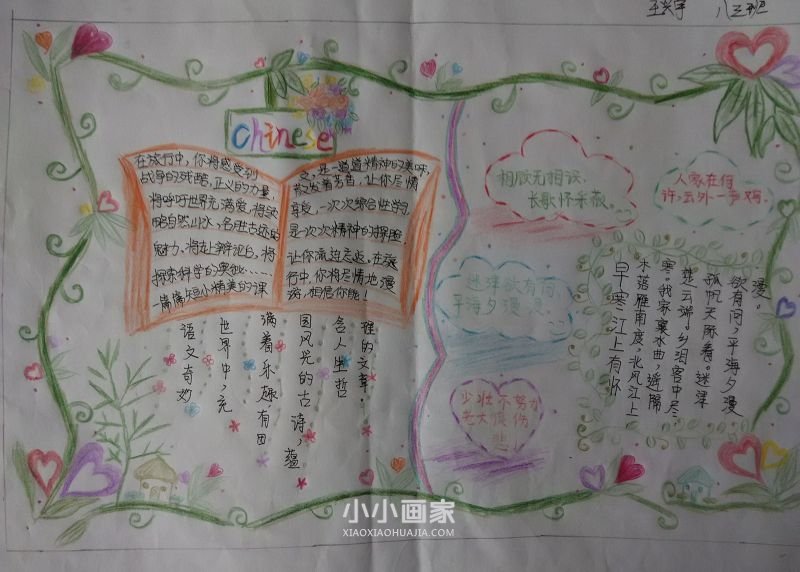 八三班
chinese
在旅行中，你将感受到
战争的残酷，正义的力量，
将呼吁世界充满爱，将领
略自然山水，名胜古迹的
魅力，将在舞池台，将
探索科学的奥秘……
一篇篇短小精美的课
文，是一道道精神的美味，
散发着芳香，让你尽情
享受，一次次综合性学习，
是一次次精神的探险，
让你流连忘返。在旅
行中，你将尽情地演
，相信你能！
语文奇妙
世界中，充
满着乐趣，有田
园风光的古诗，蕴
含人生哲
理的文章。
相顾无相识，
长歌怀采薇。
人家在何
许，云外一声鸡。
迷津欲有问，
平海夕漫漫。
少壮不努力
老大徒伤
悲
早寒江上有怀
木落雁南度，北风江上
寒。我家襄水曲，遥隔
楚云端。乡泪客中尽，
孤帆天际看。迷津
欲有问，平海夕漫
漫。
小小画家
XIAOXIAOHUAJIA.COM